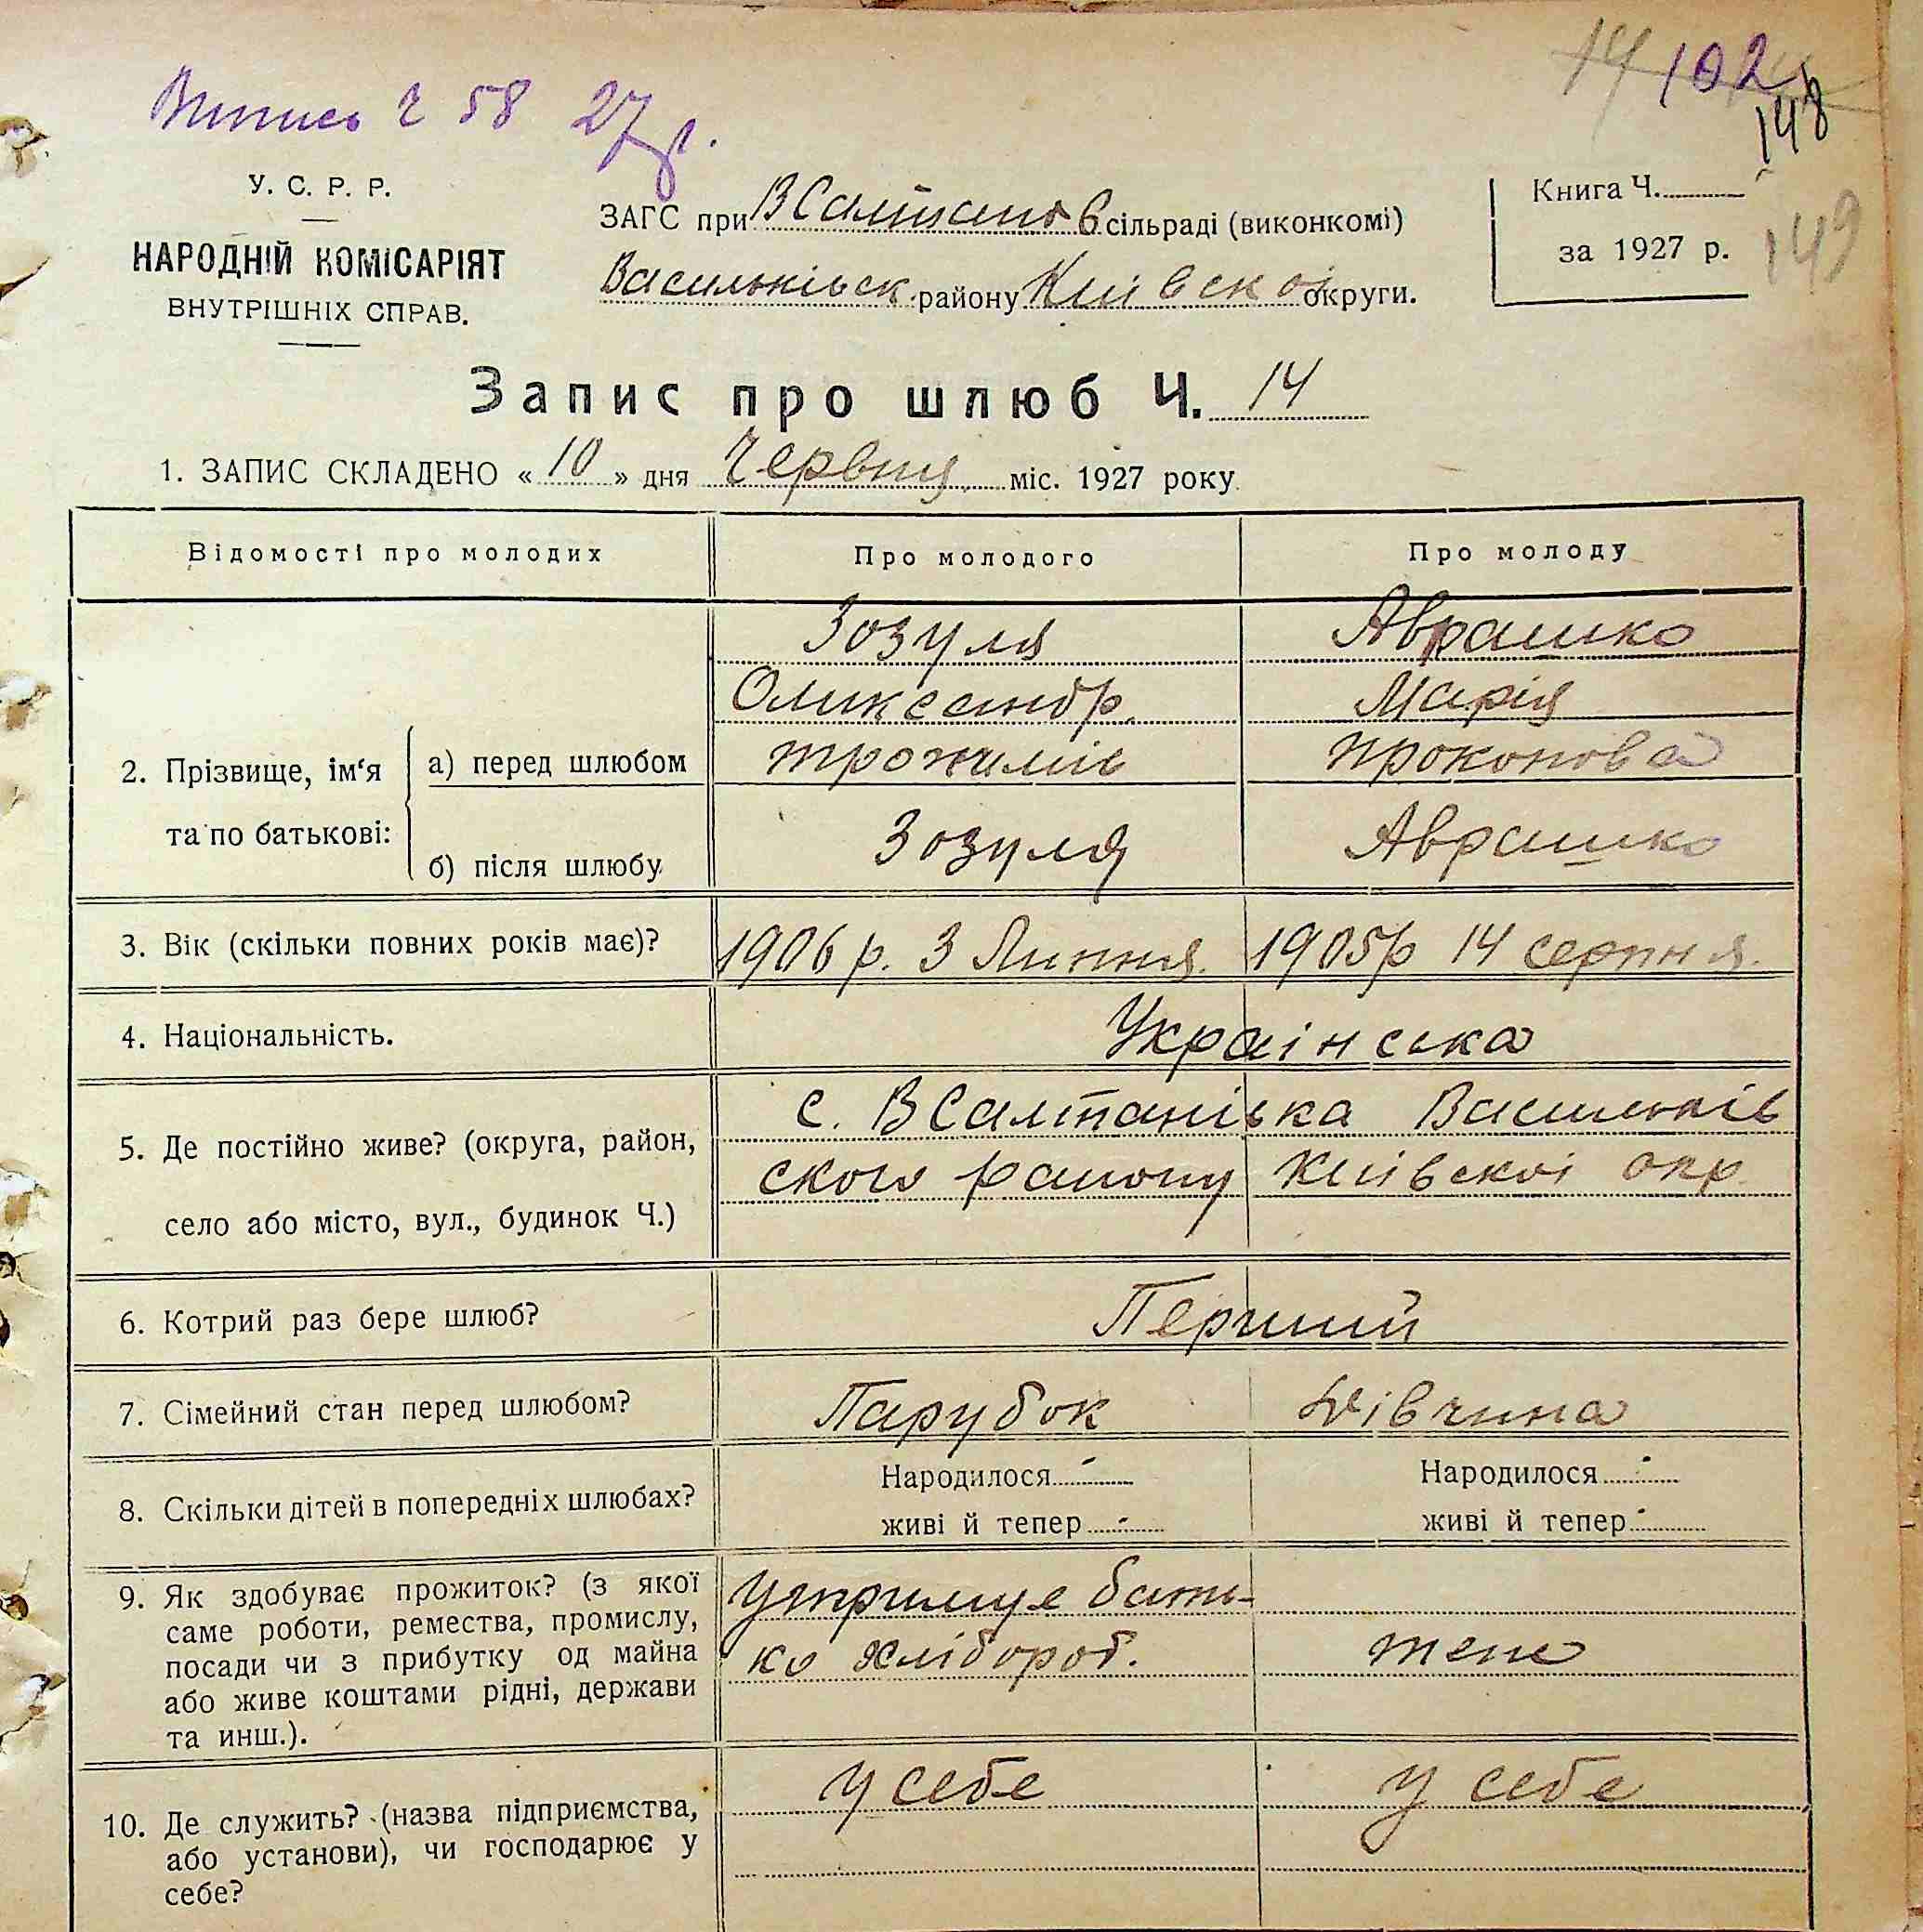 14 102
148
Витпись ч 58 27 р.
У. С. Р. Р.
НАРОДНІЙ КОМІСАРІЯТ
ВНУТРІШНІХ СПРАВ.
ЗАГС при ВСалтанов сільраді (виконкомі)
Васильківск району Киівскоі округи.
Книга Ч.
за 1927 р.
149
Запис про шлюб Ч. 14
1. ЗАПИС СКЛАДЕНО « 10 » дня Червня міс. 1927 року
Відомості про молодих Про молодого Про молоду
2. Прізвище, ім‘я та по батькові:
а) перед шлюбом
Зозуля Аврашко
Олександр Марія
Прокопова
б) після шлюбу Зозуля Аврашко
3. Вік (скільки повних років має)? 1906 р. 3 Липня. 1905р 14 серпня.
4. Національність. Украінська
5. Де постійно живе? (округа, район,
село або місто, вул., будинок Ч.)
с. ВСалтанівка Васильків
ского району Киівскоі окр.
6. Котрий раз бере шлюб? Перший
7. Сімейний стан перед шлюбом? Парубок Дівчина
8. Скільки дітей в попередніх шлюбах?
Народилося - Народилося -
живі й тепер - живі й тепер -
9. Як здобуває прожиток? (з якої
саме роботи, ремества, промислу,
посади чи з прибутку од майна
або живе коштами рідні, держави
та инш.).
Утримує бать-
ко хлібороб. теж
10. Де служить? (назва підприємства,
або установи), чи господарює у
себе?
у себе у себе